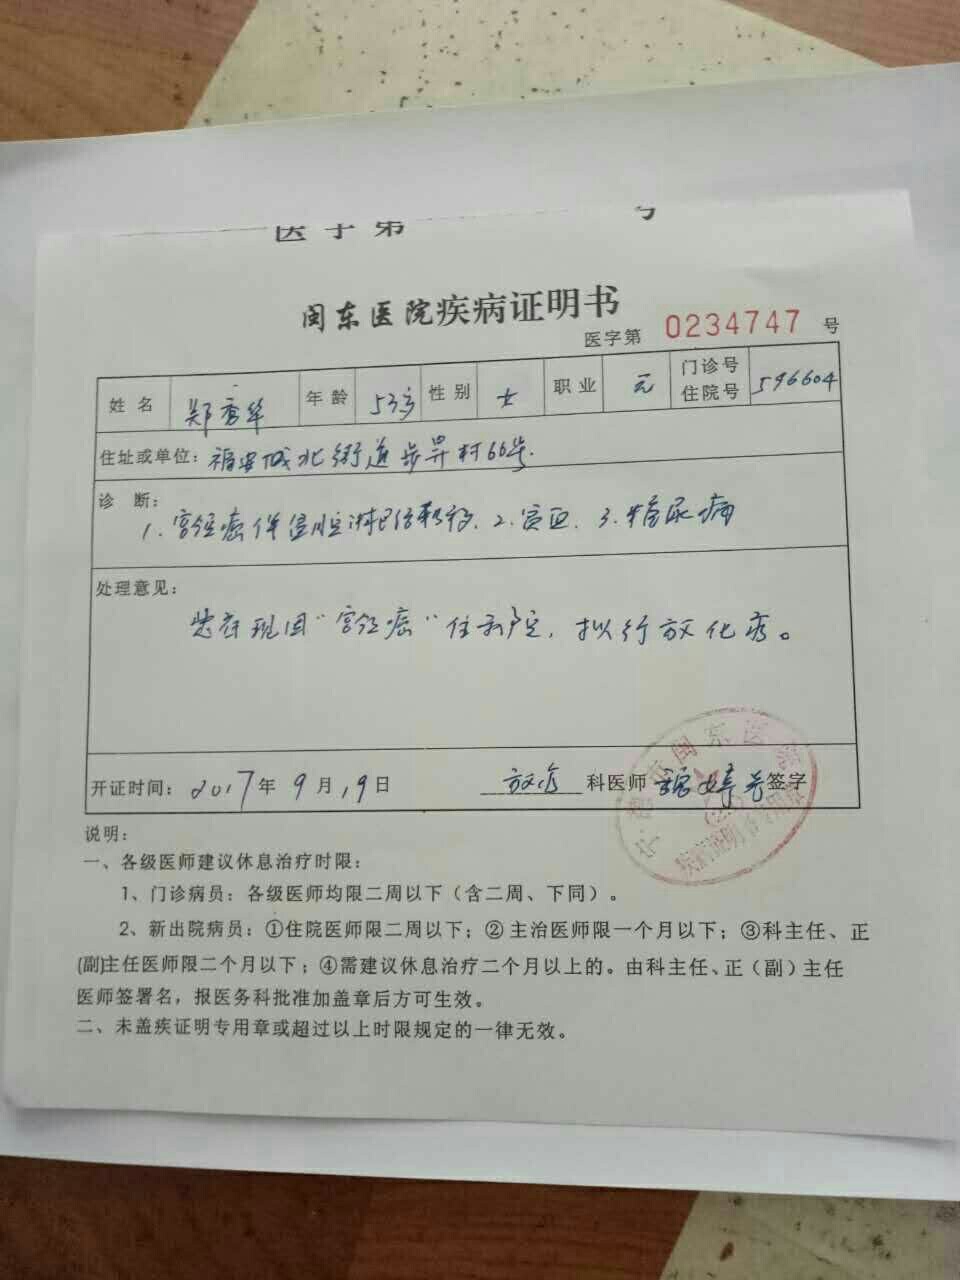 医字第 号
闽东医院疾病证明书
医字第 0234747 号
姓名 郑秀华 年龄 53岁 性别 女 职业 无 门诊号 住院号 596604
住址或单位：福安城北街道步昇村66号.
诊 断：
1. 宫颈癌伴盆腔淋巴结转移. 2. 贫血. 3. 糖尿病
处理意见：
患者现因"宫颈癌"住我院，拟行放化疗。
开证时间：2017年9月19日 放疗 科医师 签字
疾病证明书专用章
说明：
一、各级医师建议休息治疗时限：
1、门诊病员：各级医师均限二周以下（含二周、下同）。
2、新出院病员：①住院医师限二周以下；②主治医师限一个月以下；③科主任、正
(副)主任医师限二个月以下；④需建议休息治疗二个月以上的。由科主任、正（副）主任
医师签署名，报医务科批准加盖章后方可生效。
二、未盖疾证明专用章或超过以上时限规定的一律无效。